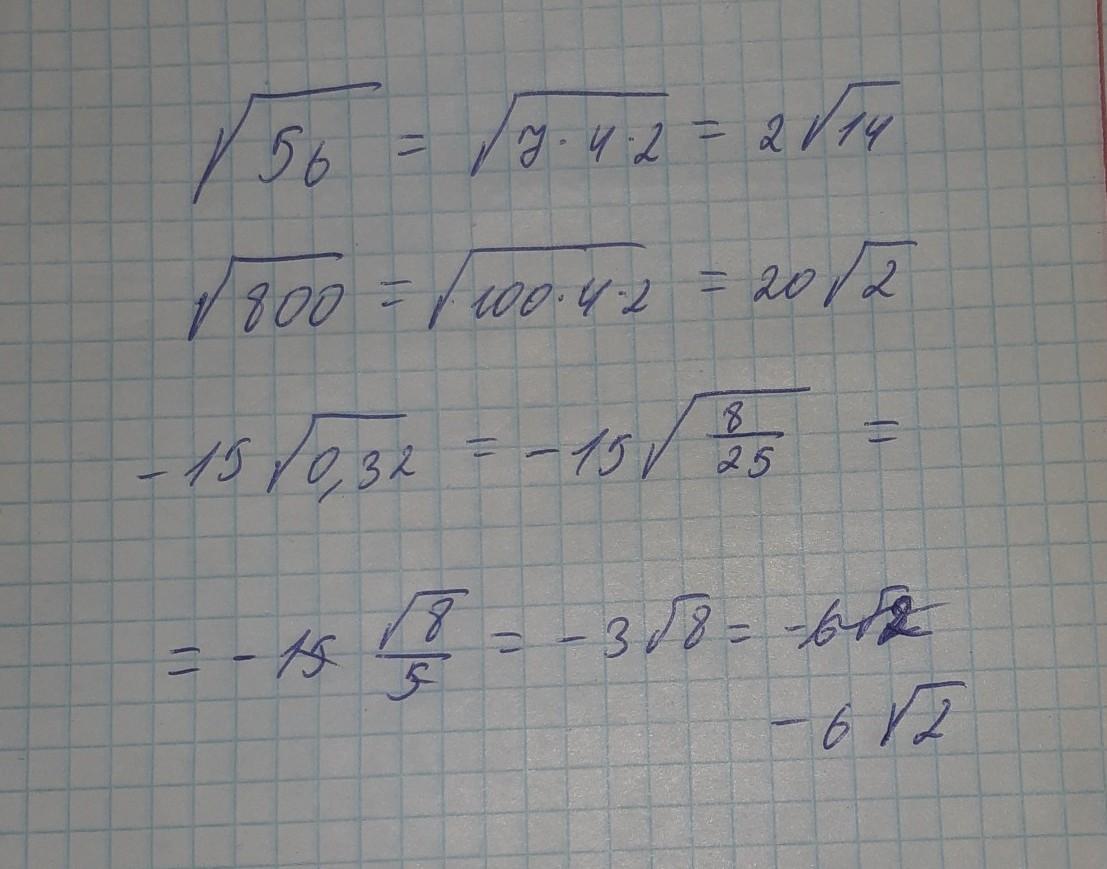 √56 = √7·4·2 = 2√14
√800 = √100·4·2 = 20√2
-15√0,32 = -15√8/25 =
= -15 √8/5 = -3√8 = -6√2
-6√2